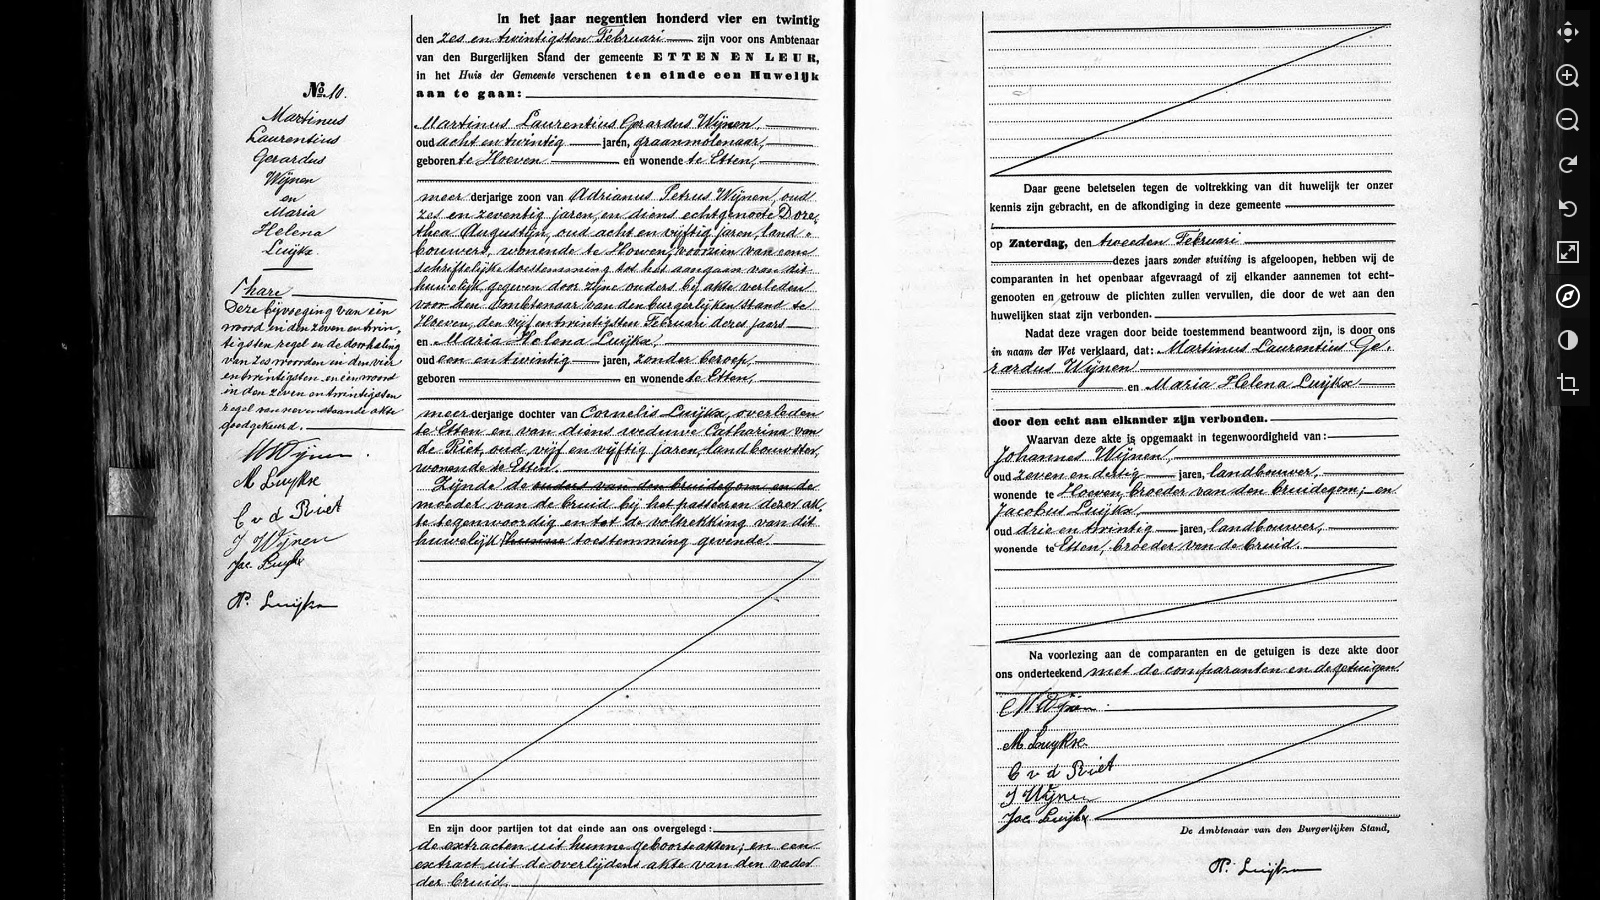 No. 10.
Martinus
Laurentius
Gerardus
Wijnen
en
Maria
Helena
Luijkx.
1 hare
Deze bijvoeging van één
woord in den zeven en twin-
tigsten regel en de doorhaling
van zes woorden in den vier
en twintigsten en één woord
in den zeven en twintigsten
regel van nevenstaande akte
goedgekeurd.
M Wijnen.
M Luykse
C v d Riet
J Wijnen
Jac. Luijkx
P. Luijkx
In het jaar negentien honderd vier en twintig
den zes en twintigsten Februari zijn voor ons Ambtenaar
van den Burgerlijken Stand der gemeente ETTEN EN LEUR,
in het Huis der Gemeente verschenen ten einde een Huwelijk
aan te gaan:
Martinus Laurentius Gerardus Wijnen,
oud acht en twintig jaren, graanmolenaar,
geboren te Hoeven en wonende te Etten,
meer derjarige zoon van Adrianus Petrus Wijnen, oud
zes en zeventig jaren, en diens echtgenoote Doro-
thea Augustijn, oud acht en vijftig jaren, land-
bouwers, wonende te Hoeven, voorzien van eene
schriftelijke toestemming tot het aangaan van dit
huwelijk gegeven door zijne ouders bij akte verleden
voor den Ambtenaar van den burgerlijken stand te
Hoeven, den vijf en twintigsten Februari dezes jaars
en Maria Helena Luijkx,
oud een en twintig jaren, zonder beroep,
geboren en wonende te Etten,
meer derjarige dochter van Cornelis Luijkx, overleden
te Etten en van diens weduwe Catharina van
de Riet, oud vijf en vijftig jaren, landbouwster,
wonende te Etten.
Zijnde de ouders van den bruidegom en de
moeder van de bruid bij het passeeren dezer ak-
te tegenwoordig en tot de voltrekking van dit
huwelijk hunne toestemming gevende.
En zijn door partijen tot dat einde aan ons overgelegd:
de extracten uit hunne geboorteakten; en een
extract uit de overlijdens akte van den vader
der bruid.
Daar geene beletselen tegen de voltrekking van dit huwelijk ter onzer
kennis zijn gebracht, en de afkondiging in deze gemeente
op Zaterdag, den tweeden Februari
dezes jaars zonder stuiting is afgeloopen, hebben wij de
comparanten in het openbaar afgevraagd of zij elkander aannemen tot echt-
genooten en getrouw de plichten zullen vervullen, die door de wet aan den
huwelijken staat zijn verbonden.
Nadat deze vragen door beide toestemmend beantwoord zijn, is door ons
in naam der Wet verklaard, dat: Martinus Laurentius Ge-
rardus Wijnen
en Maria Helena Luijkx
door den echt aan elkander zijn verbonden.
Waarvan deze akte is opgemaakt in tegenwoordigheid van:
Johannes Wijnen,
oud zeven en dertig jaren, landbouwer,
wonende te Hoeven, broeder van den bruidegom; en
Jacobus Luijkx,
oud drie en twintig jaren, landbouwer,
wonende te Etten, broeder van de bruid.
Na voorlezing aan de comparanten en de getuigen is deze akte door
ons onderteekend met de comparanten en de getuigen.
M Wijnen
M Luykse
C v d Riet
J Wijnen
Jac Luijkx
De Ambtenaar van den Burgerlijken Stand,
P. Luijkx